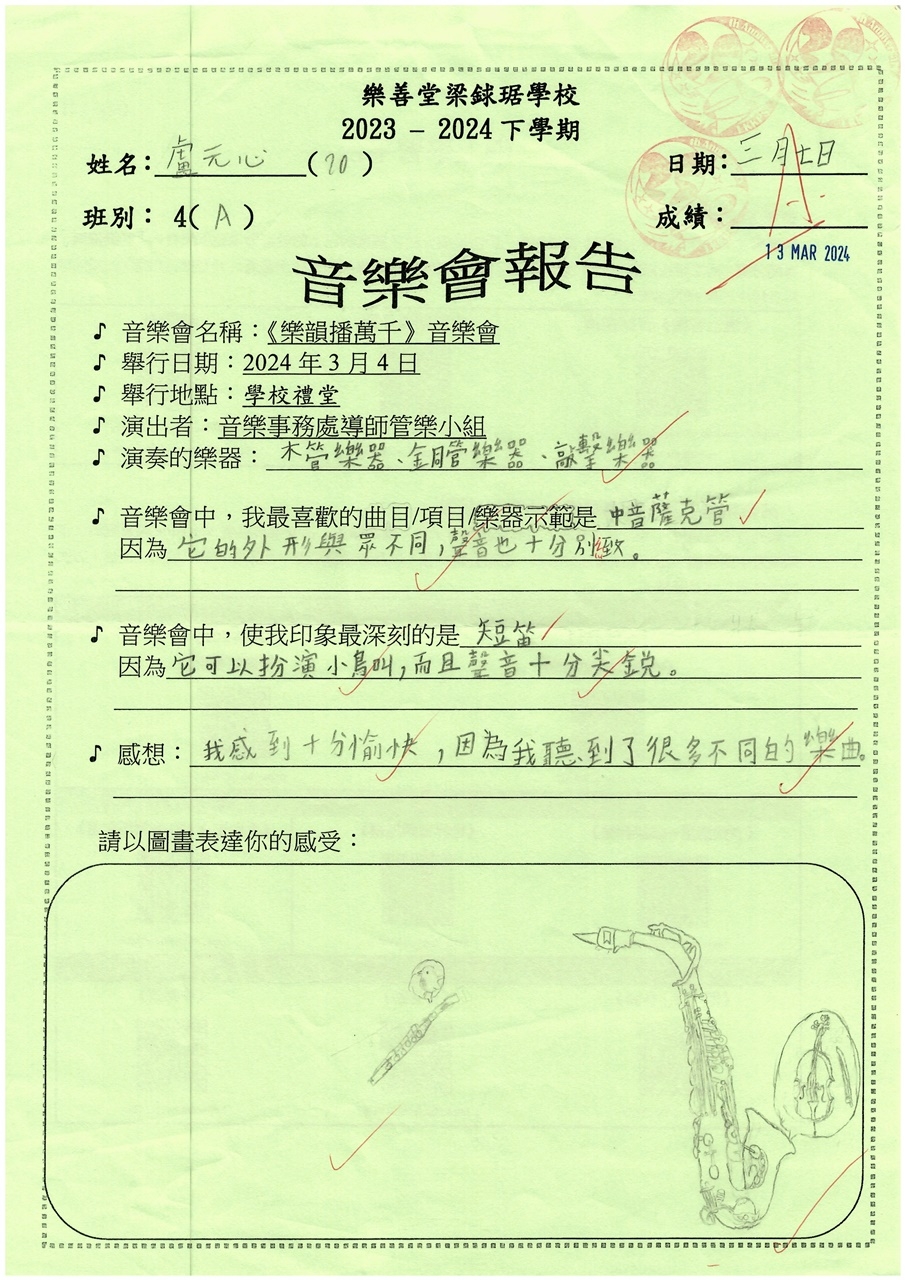 樂善堂梁銶琚學校
2023 – 2024 下學期
姓名：盧元心 (20)
日期：三月七日
班別： 4( A )
成績：A-
13 MAR 2024
音樂會報告
♪ 音樂會名稱：《樂韻播萬千》音樂會
♪ 舉行日期：2024 年 3 月 4 日
♪ 舉行地點：學校禮堂
♪ 演出者：音樂事務處導師管樂小組
♪ 演奏的樂器：木管樂器、銅管樂器、敲擊樂器
♪ 音樂會中，我最喜歡的曲目/項目/樂器示範是 中音薩克管
因為 它的外形與眾不同，聲音也十分別緻。
♪ 音樂會中，使我印象最深刻的是 短笛
因為它可以扮演小鳥叫，而且聲音十分尖銳。
♪ 感想：我感到十分愉快，因為我聽到了很多不同的樂曲。
請以圖畫表達你的感受：